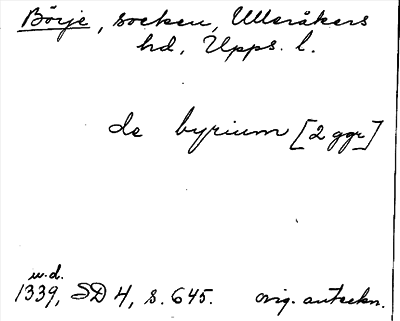 Börje, socken, Ulleråkers
hd, Upps. l.
de byrium [2 ggr]
u.d.
1339, SD 4, s. 645. orig. anteckn.